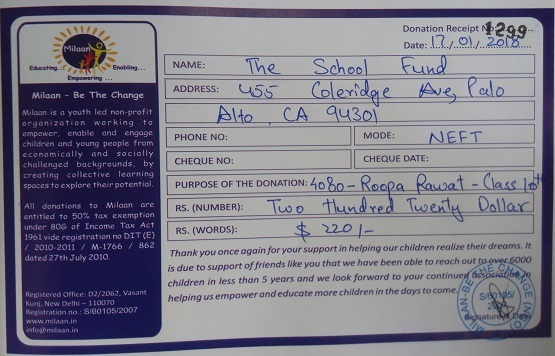 Milaan
Educating...
Enabling...
Empowering ...
Milaan - Be The Change
Milaan is a youth led non-profit
organization working to
empower, enable and engage
children and young people from
economically and socially
challenged backgrounds, by
creating collective learning
spaces to explore their potential.
All donations to Milaan are
entitled to 50% tax exemption
under 80G of Income Tax Act
1961 vide registration no DIT (E)
/ 2010-2011 / M-1766 / 862
dated 27th July 2010.
Registered Office: D2/2062, Vasant
Kunj, New Delhi - 110070
Registration no.: S/60105/2007
www.milaan.in
info@milaan.in
Donation Receipt No: 1299
Date: 17/01/2018
NAME: The School Fund
ADDRESS: 455 Coleridge Ave, Palo
Alto, CA 94301
PHONE NO: MODE: NEFT
CHEQUE NO: CHEQUE DATE:
PURPOSE OF THE DONATION: 4080-Roopa Rawat-Class 10th
RS. (NUMBER): Two Hundred Twenty Dollar
RS. (WORDS): $ 220/-
Thank you once again for your support in helping our children realize their dreams. It
is due to support of friends like you that we have been able to reach out to over 6000
children in less than 5 years and we look forward to your continued association in
helping us empower and educate more children in the days to come.
MILAAN-BE THE CHANGE (NGO)
S/60105/
Signature & Date